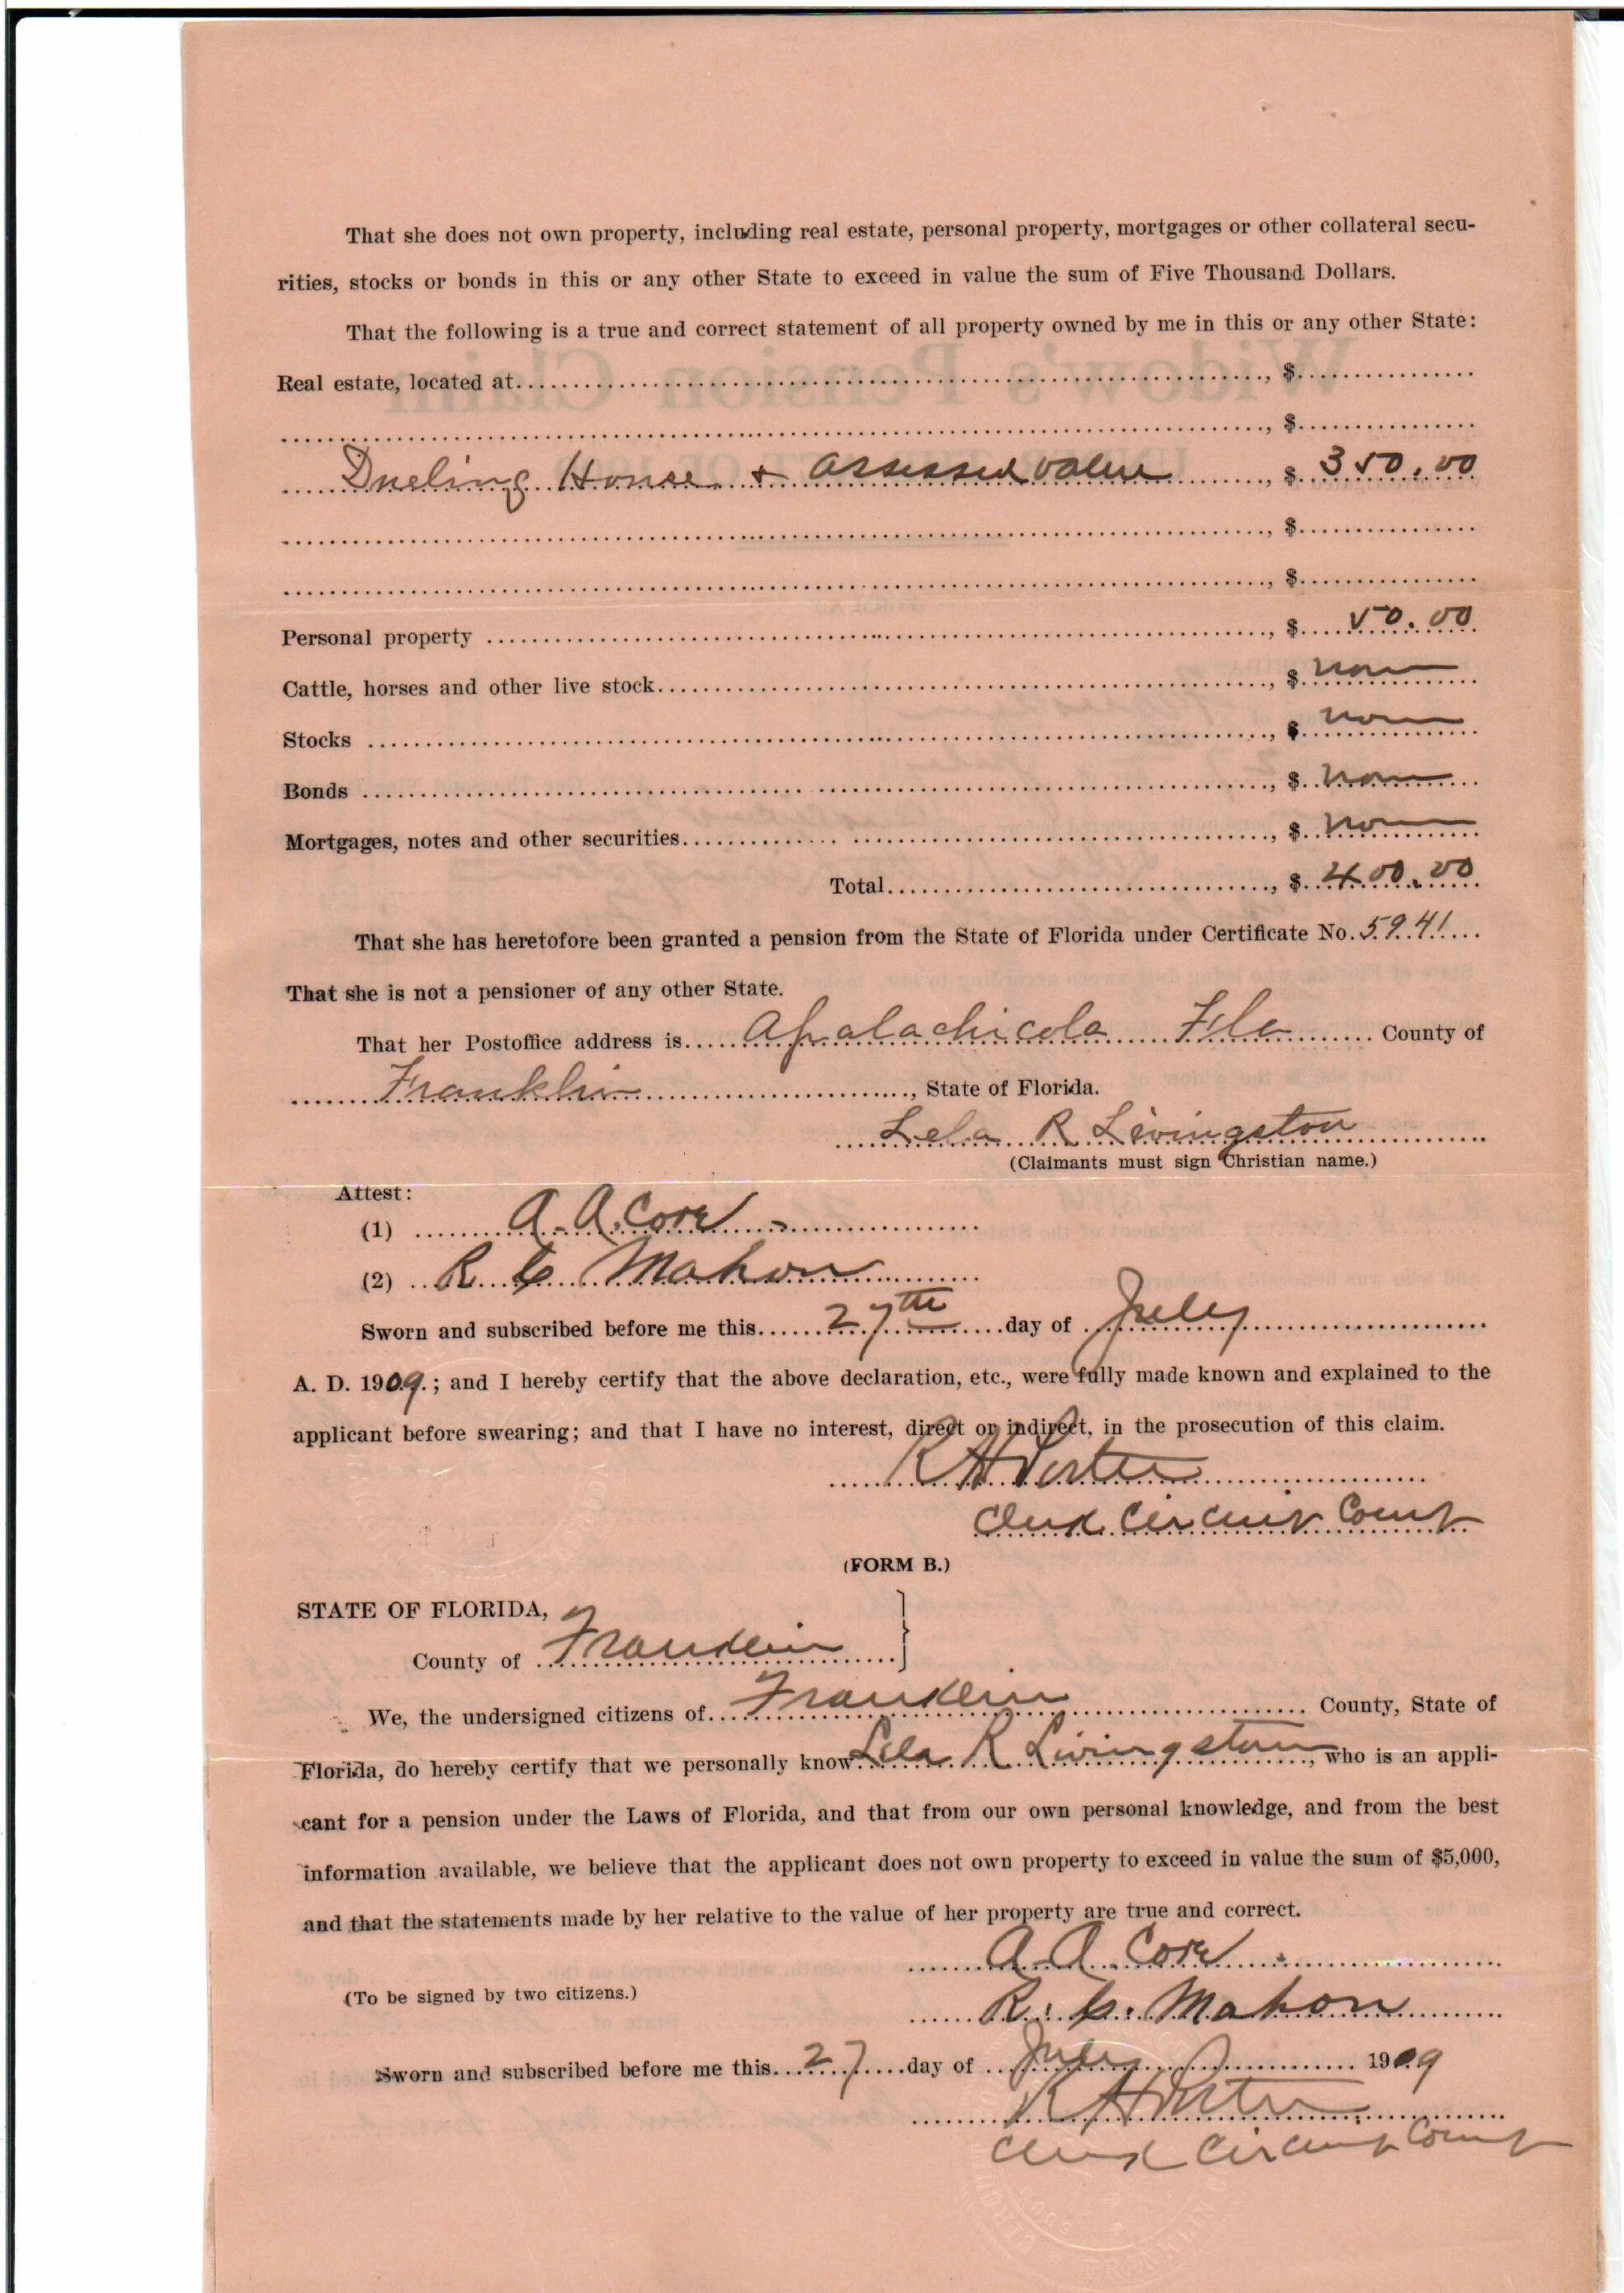 That she does not own property, including real estate, personal property, mortgages or other collateral secu-
rities, stocks or bonds in this or any other State to exceed in value the sum of Five Thousand Dollars.
That the following is a true and correct statement of all property owned by me in this or any other State:
Real estate, located at, $
, $
Dueling House & assessed value, $ 350.00
, $
, $
Personal property, $ 50.00
Cattle, horses and other live stock, $ none
Stocks, $ none
Bonds, $ none
Mortgages, notes and other securities, $ none
Total, $ 400.00
That she has heretofore been granted a pension from the State of Florida under Certificate No. 5941
That she is not a pensioner of any other State.
That her Postoffice address is Apalachicola Fla County of
Franklin, State of Florida.
Lela R Livingston
(Claimants must sign Christian name.)
Attest:
(1) A. A. Core
(2) R C Mahon
Sworn and subscribed before me this 27th day of July
A. D. 1909.; and I hereby certify that the above declaration, etc., were fully made known and explained to the
applicant before swearing; and that I have no interest, direct or indirect, in the prosecution of this claim.
R H Porter
Clerk Circuit Court
(FORM B.)
STATE OF FLORIDA,
County of Franklin
We, the undersigned citizens of Franklin County, State of
Florida, do hereby certify that we personally know Lela R Livingston, who is an appli-
cant for a pension under the Laws of Florida, and that from our own personal knowledge, and from the best
information available, we believe that the applicant does not own property to exceed in value the sum of $5,000,
and that the statements made by her relative to the value of her property are true and correct.
A. A. Core
(To be signed by two citizens.)
R. C. Mahon
Sworn and subscribed before me this 27 day of July 1909
R H Porter
Clerk Circuit Court